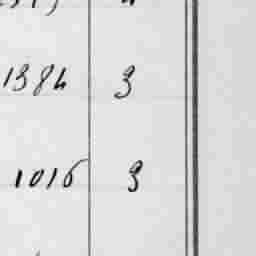 1384 3
1016 3